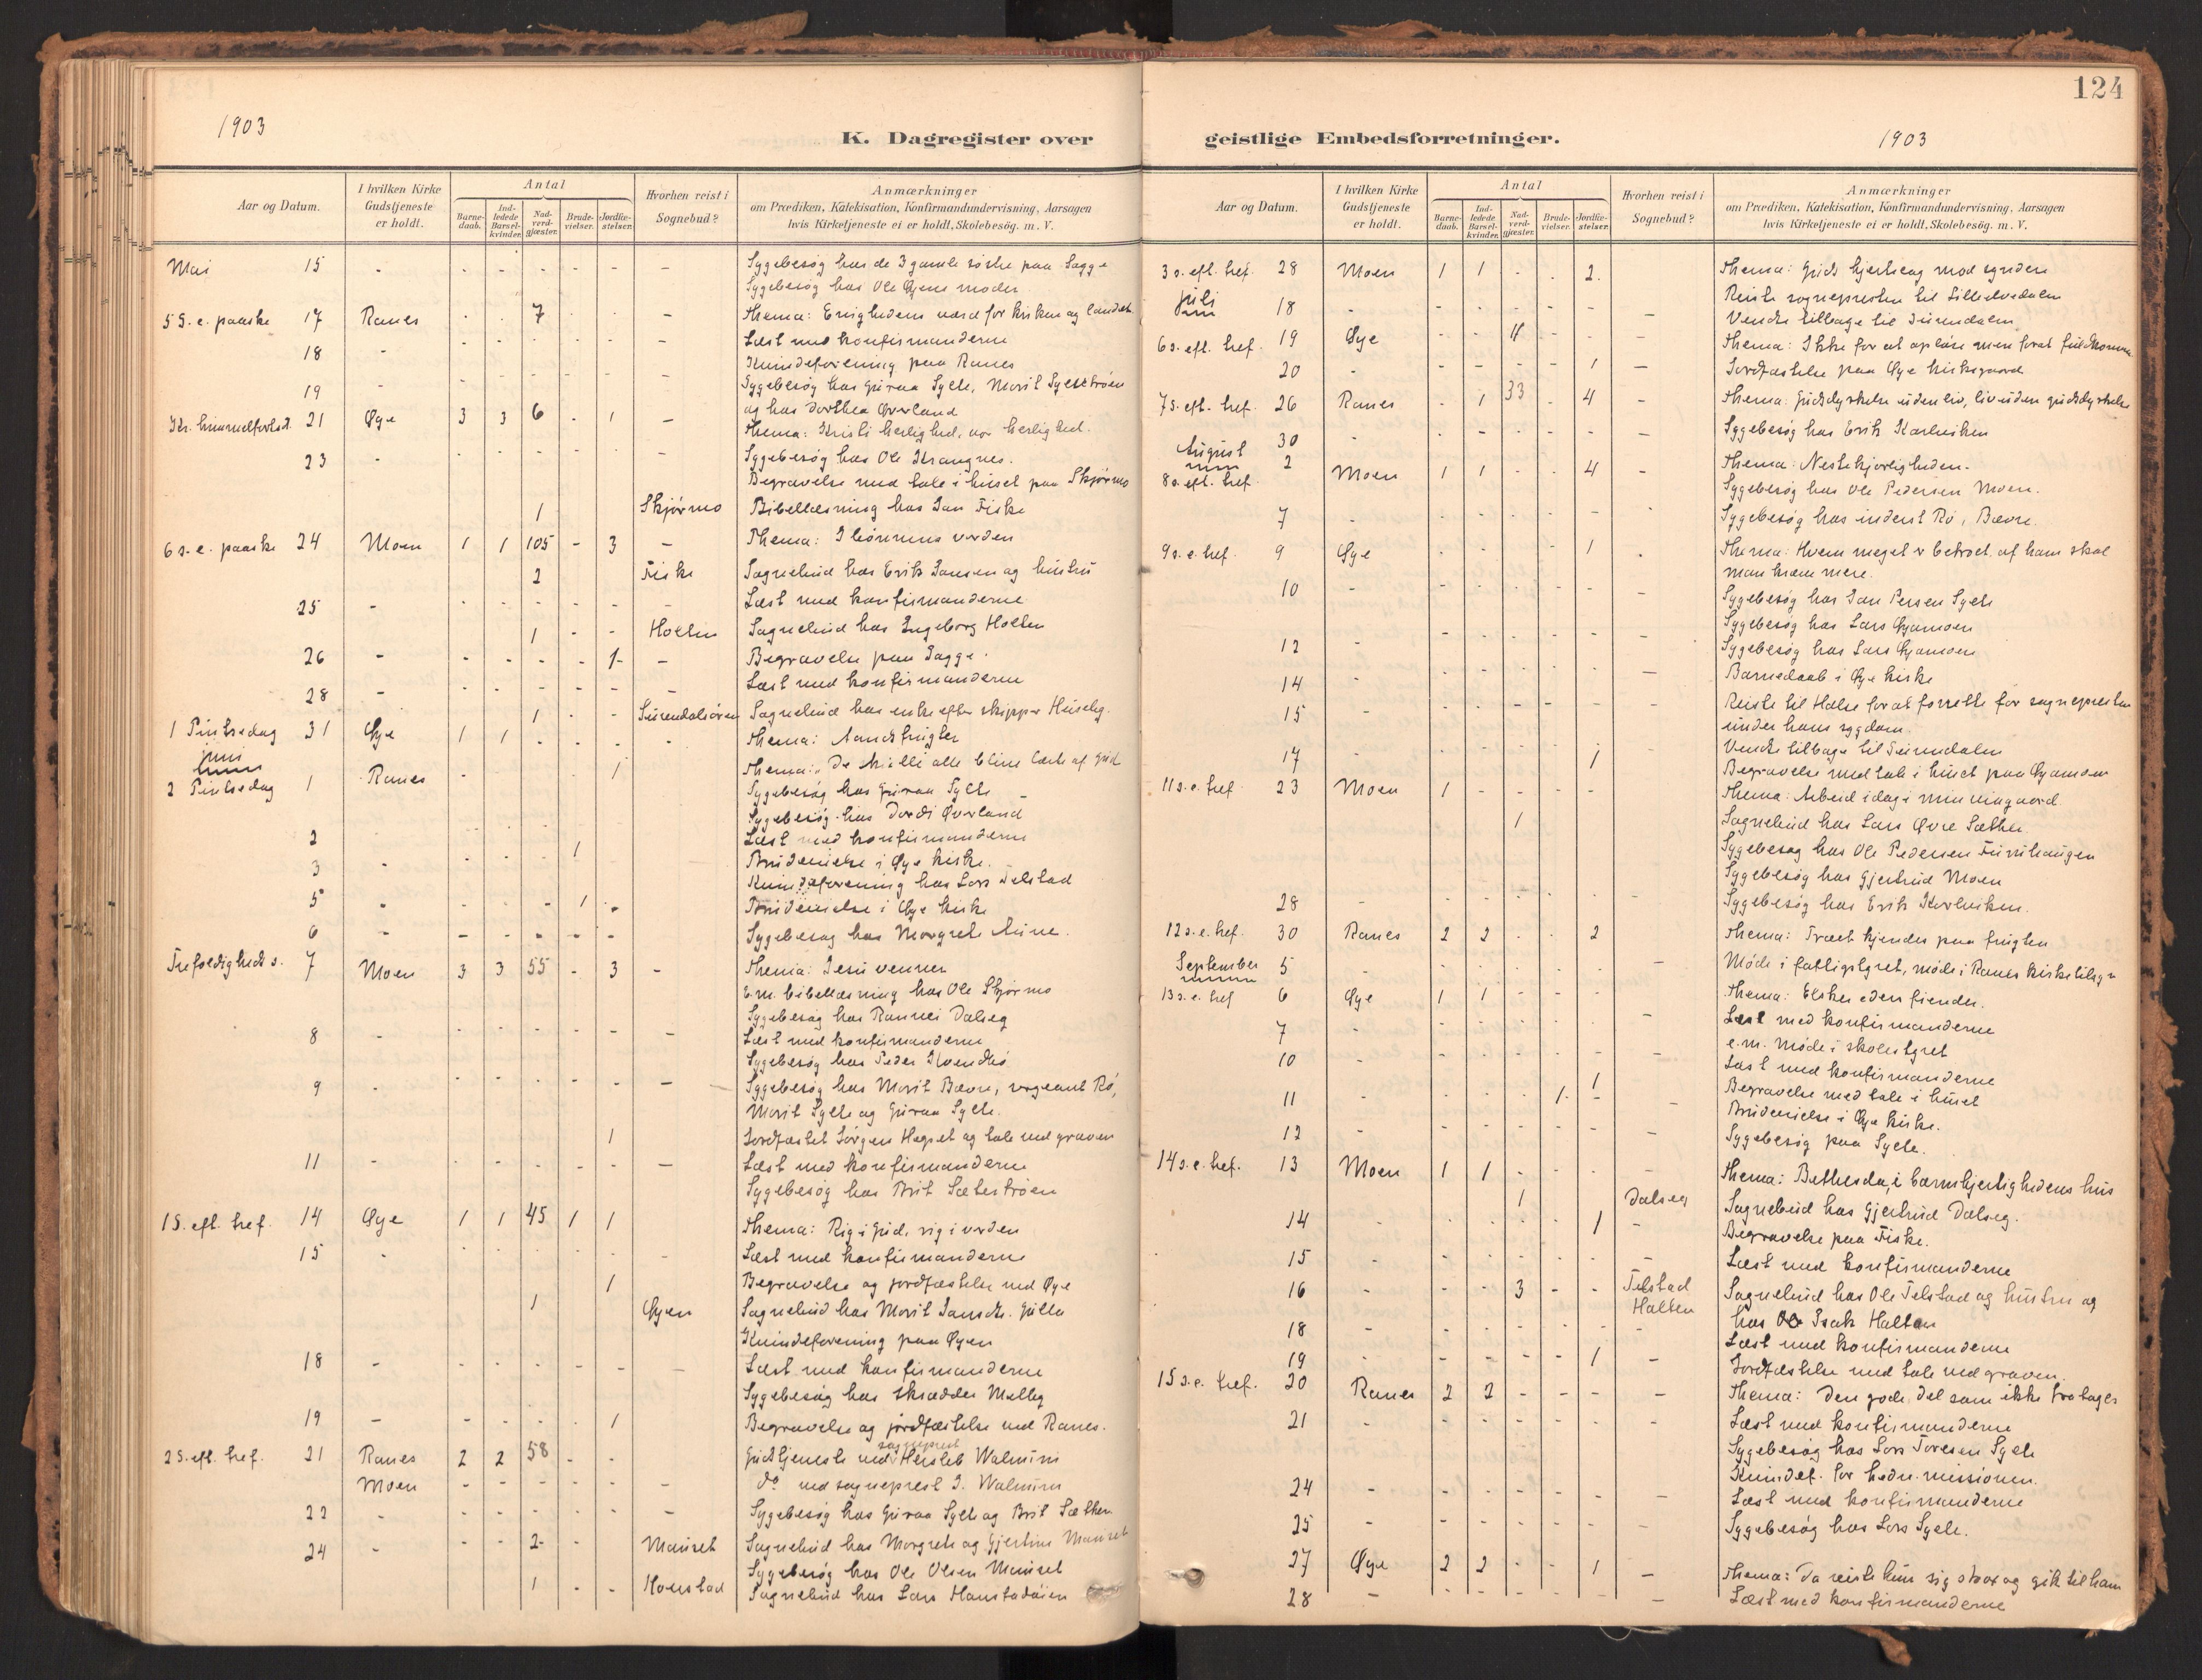 124
1903
K. Dagregister over geistlige Embedsforretninger.
1903
Aar og Datum. I hvilken Kirke Gudstjeneste er holdt. Antal Barnedaab. Indledede Barselkvinder. Nadverdgjæster. Brudevielser. Jordfæstelser. Hvorhen reist i Sognebud? Anmærkninger om Prædiken, Katekisation, Konfirmandundervisning, Aarsagen hvis Kirketjeneste ei er holdt, Skolebesög. m. V.
Mai 15 - - - - - - - Sygebesøg hos de 3 gamle søstre paa Sagge
Sygebesøg hos Ole Øyens moder
5 S. e. paaske 17 Ranes - - 7 - - - Thema: Enighedens værd for kirken og landet.
18 - - - - - - - Læst med konfirmanderne
Kvindeforening paa Ranes
19 - - - - - - - Sygebesøg hos Guraa Sylte, Marit Syltetrøen
og hos Dorthea Øverland
Kr. himmelfartsd. 21 Øye 3 3 6 - 1 - Thema: Kristi herlighed, vor herlighed.
23 - - - - - - - Sygebesøg hos Ole Krangnes.
Begravelse med tale i huset paa Skjørmo
1 Skjørmo Bibellæsning hos Jan Fiske
6 s. e. paaske 24 Moen 1 1 105 - 3 - Thema: I bønnens verden
2 Fiske Sognebud hos Erik Jansen og hustru
25 - - - - - - - Læst med konfirmanderne
1 - - Holten Sognebud hos Ingeborg Holten
26 - - - - - 1 - Begravelse paa Sagge.
28 - - - - - - - Læst med konfirmanderne
1 - - Surendalsøren Sognebud hos enke efter skipper Huseby.
1 Pintsedag 31 Øye 1 1 - - - - Thema: Aandsfrugter
juni
2 Pintsedag 1 Ranes - - - - 1 Thema: De skulle alle blive lærte af Gud
Sygebesøg hos Guraa Sylte
Sygebesøg hos Dordi Øverland
2 Læst med konfirmanderne
3 - - - - 1 Brudevielse i Øye kirke.
Kvindeforening hos Lars Telstad
5 - - - - 1 - Brudevielse i Øye kirke
6 - - - - - - Sygebesøg hos Margrete Aune.
Trefoldigheds s. 7 Moen 3 3 55 - 3 - Thema: Jesu venner
E.m. bibellæsning hos Ole Skjørmo
Sygebesøg hos Rannei Dalseg
8 - - - - - - - Læst med konfirmanderne
Sygebesøg hos Peder Kvendbø
9 - - - - - - - Sygebesøg hos Marit Bævre, sergeant Rø,
Marit Sylte og Guraa Sylte.
1 Jordfæstet Jørgen Hagset og tale ved graven
11 - - - - - - - Læst med konfirmanderne
Sygebesøg hos Brit Sætertrøen
1 S. eft. tref. 14 Øye 1 1 45 1 1 Thema: Rig i Gud, rig i verden
15 - - - - - - - Læst med konfirmanderne
1 Begravelse og jordfæstelse ved Øye
1 Øyen Sognebud hos Marit Jansdtr. Gulla
Kvindeforening paa Øyen
18 - - - - - - - Læst med konfirmanderne
Sygebesøg hos skrædder Melby
19 - - - - - 1 Begravelse og jordfæstelse ved Ranes.
2 S. eft. tref. 21 Ranes 2 2 58 - - Gudstjeneste ved sogneprest Hersleb Walnum
Moen - - - - - - do ved sogneprest I. Walnum
22 - - - - - - - Sygebesøg hos Guraa Sylte og Brit Sæther.
24 - - - 2 - - Mauset Sognebud hos Margrete og Gjertine Mauset
Sygebesøg hos Ole Olsen Mauset
1 - - Honstad Sognebud hos Lars Honstadøien
Aar og Datum. I hvilken Kirke Gudstjeneste er holdt. Antal Barnedaab. Indledede Barselkvinder. Nadverdgjæster. Brudevielser. Jordfæstelser. Hvorhen reist i Sognebud? Anmærkninger om Prædiken, Katekisation, Konfirmandundervisning, Aarsagen hvis Kirketjeneste ei er holdt, Skolebesög. m. V.
3 s. eft. tref. 28 Moen 1 1 - - 2 Thema: Guds hjertelag mod syndere
juli 18 - - - - - - - Reiste sognepresten til Lillelvedalen
Vendte tilbage til Surendalen
6 s. eft. tref. 19 Øye - - 4 - - - Thema: Ikke for at opløse men forat fuldkomme
20 - - - - - 1 - Jordfæstelse paa Øye kirkegaard
7 S. eft. tref. 26 Ranes - 1 33 - 4 - Thema: Gudsdyrkelse uden liv, liv uden gudsdyrkelse
30 - - - - - - - Sygebesøg hos Erik Karlsviken
August
8 s. eft. tref. 2 Moen 1 1 - - 4 - Thema: Nestekjærligheden.
Sygebesøg hos Ole Pedersen Moen.
7 - - - - - - - Sygebesøg hos inderst Rø, Bævre.
9 s. e. tref. 9 Øye - - - - 1 - Thema: Hvem meget er betroet, af ham skal
man kræve mere.
10 - - - - - - - Sygebesøg hos Jan Persen Sylte
Sygebesøg hos Lars Øyamoen
12 - - - - - - - Sygebesøg hos Lars Øyamoen
14 - - - - - - - Barnedaab i Øye kirke
15 - - - - - - - Reiste til Halse for at forrette for sognepresten
under hans sygdom.
17 1 Vendte tilbage til Surendalen
Begravelse med tale i huset paa Øyamoen
11 s. e. tref. 23 Moen 1 - - - - Thema: Arbeid idag i min vingaard.
1 Sognebud hos Lars Øvre Sæther.
Sygebesøg hos Ole Pedersen Furuhaugen
Sygebesøg hos Gjertrud Moen
28 - - - - - - - Sygebesøg hos Erik Karlsviken.
12 s. e. tref. 30 Ranes 2 2 - - 2 Thema: Træet kjendes paa frugten
September 5 - - - - - - - Møde i fattigstyret, møde i Ranes kirketilsyn
13 s. e. tref 6 Øye 1 1 - - - Thema: Elsker eders fiender.
7 - - - - - - - Læst med konfirmanderne
e.m. Møde i skolestyret
10 - - - - - - - Læst med konfirmanderne
1 Begravelse med tale i huset
11 - - - - 1 - - Brudevielse i Øye kirke.
12 - - - - - - - Sygebesøg paa Sylte.
14 s. e. tref. 13 Moen 1 1 - - - Thema: Bethesda, barmhjertighedens hus
1 Dalseg Sognebud hos Gjertrud Dalseg.
14 - - - - - 1 - Begravelse paa Fiske.
15 - - - - - - - Læst med konfirmanderne
16 - - - 3 - - Telstad Sognebud hos Ole Telstad og hustru og
Halten hos Isak Halten
18 - - - - - - - Læst med konfirmanderne
19 - - - - - 1 - Jordfæstelse med tale ved graven.
15 s. e. tref. 20 Ranes 2 2 - - - - Thema: Den gode del som ikke fratages
21 - - - - - - Læst med konfirmanderne
Sygebesøg hos Lars Toresen Sylte
Kvindef. for hedn. missionen.
24 - - - - - - - Læst med konfirmanderne
25 - - - - - - - Sygebesøg hos Lars Sylte.
27 Øye 2 2 - - 1 - Thema: Da reiste hun sig strax og gik til ham
28 - - - - - - - Læst med konfirmanderne